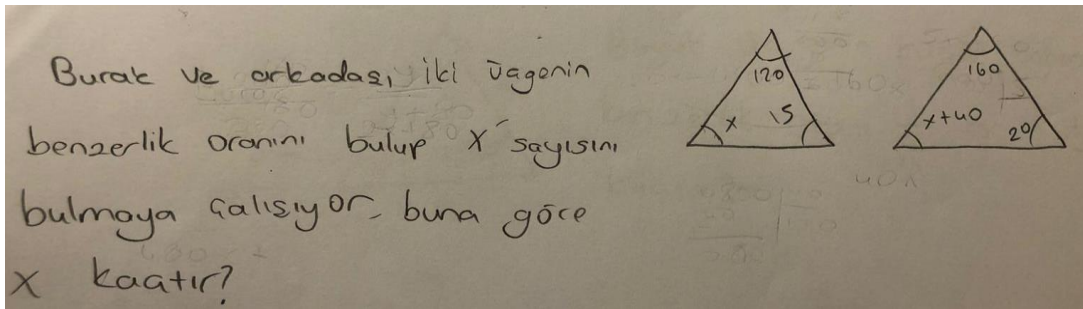 Burak ve arkadaşı iki üçgenin
benzerlik oranını bulup x sayısını
bulmaya çalışıyor, buna göre
x kaçtır?
120
x 15
160
x+40
20